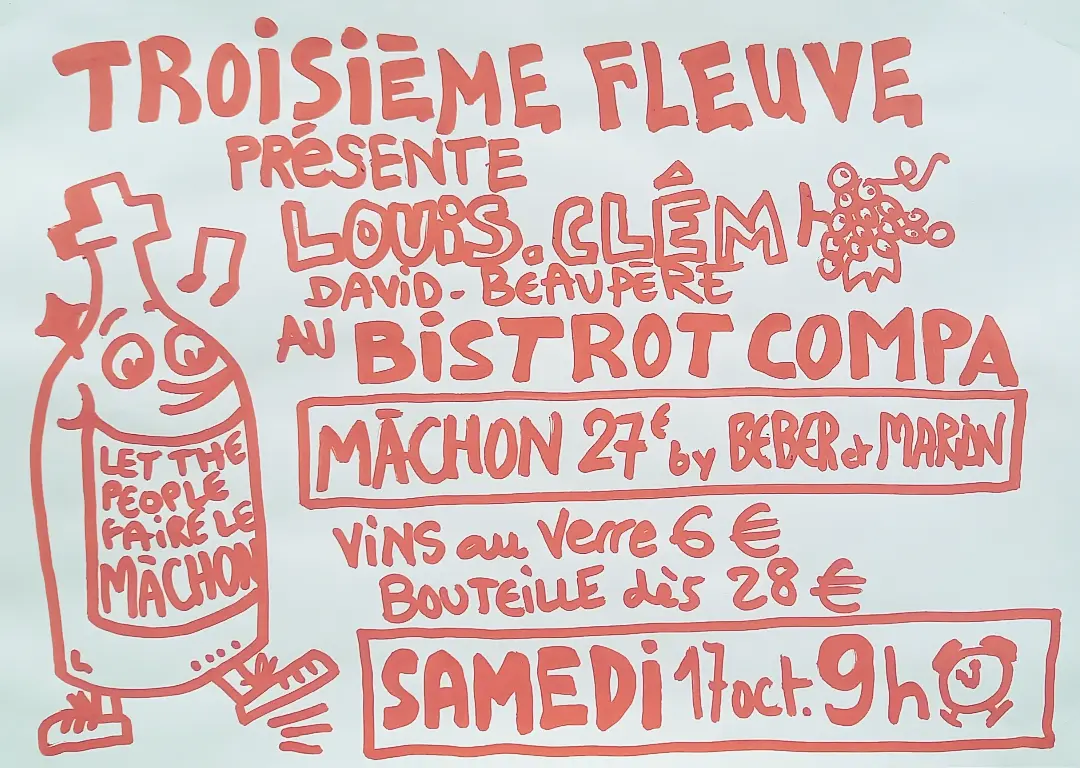 TROiSiÈME FLEUVE
PRéSENTE
LOUiS. CLÊM
DAViD - BEAUPÈRE
AU BiSTROT COMPA
MÂCHON 27€ by BEBER et MARiN
ViNS au Verre 6 €
BOUTEiLLE dès 28 €
SAMEDi 17 oct. 9h
LET THE
PEOPLE
FAiRE LE
MÂCHON